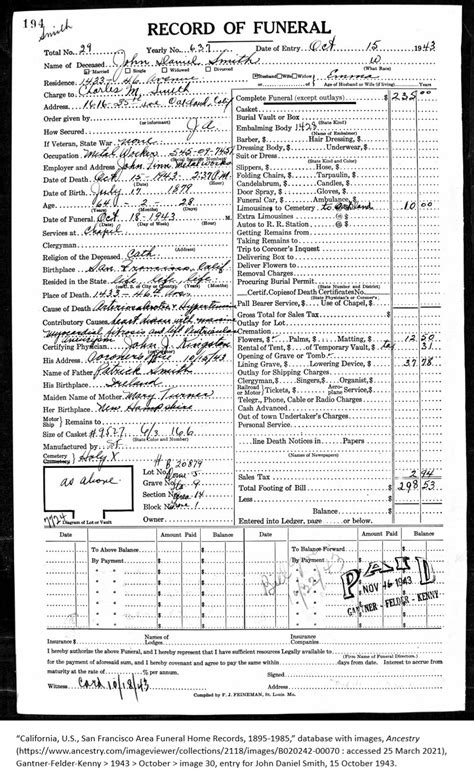 194 Smith
RECORD OF FUNERAL
Total No. 29 Yearly No. 637 Date of Entry Oct 15 1943
Name of Deceased John Daniel Smith W
(What Race)
Married Single Widowed Divorced
Residence 1433-46 Avenue
Husband Wife Widow Emma
Age of Husband or Wife (if living) Years
Charge to Charles M. Smith
Address 1616- Oakland, Calif
Order given by
(or informant)
How Secured
If Veteran, State War none
Occupation Metal Worker 545-09-7451
(Social Security Number)
Employer and Address John Finn Metal Works
Date of Death Oct 15-1943-2:20 P.M.
Date of Birth July 17 1879
Age 64 - 2 - 28
Date of Funeral Oct 18-1943
(Date) (Day of Week) (Hour)
Services at Chapel
Clergyman
Religion of the Deceased Cath
Birthplace San Francisco, Calif.
Resided in the State Life, Life, Life
Place of Death 1433-46 Ave
Cause of Death
Contributory Causes
Certifying Physician John J. Kingston
His Address Coroners 10/15/43
Name of Father Patrick Smith
His Birthplace Ireland
Maiden Name of Mother Mary Turner
Her Birthplace New Hampshire
Motor Ship Remains to
Size of Casket #9527 6/3 166
(State Color and Number)
Manufactured by
Cemetery Crematory Holy X
as above
# B 20879
Lot No.
Grave No. 9
Section No. Area 14
Block No. 1
Owner
7724 Diagram of Lot or Vault
Complete Funeral (except outlays) $ 235 00
Burial Vault or Box
(State Kind)
Embalming Body 1428
(Name of Embalmer)
Barber, $ Hair Dressing, $
Dressing Body, $ Underwear, $
Suit or Dress
(State Kind and Color)
Slippers, $ Hose, $
Folding Chairs, $ Tarpaulin, $
Candelabrum, $ Candles, $
Door Spray, $ Gloves, $
Funeral Car, $ Ambulance, $
Limousines to Cemetery to Oakland 10 00
Extra Limousines @ $
Autos to R. R. Station @ $
Getting Remains from
Taking Remains to
Trip to Coroner's Inquest
Delivering Box to
Deliver Flowers to
Removal Charges
Procuring Burial Permit
(State Number and District)
Certif. Copies of Death Certificates No.
(State Physician's or Coroner's)
Pall Bearer Service, $ Use of Chapel, $
Gross Total for Sales Tax $
Outlay for Lot
Cremation
Flowers, $ Palms, $ Matting, $ 12 50
Rental of Tent, $ of Temporary Vault, $ tax 31
Opening of Grave or Tomb
Lining Grave, $ Lowering Device, $ 37 78
Outlay for Shipping Charges
Clergyman, $ Singers, $ Organist, $
Railroad or Motor Tickets, $ Aeroplane Service, $
Telegr., Phone, Cable or Radio Charges
Cash Advanced
Out of town Undertaker's Charges
Personal Service
line Death Notices in Papers
(Names of Newspapers)
Sales Tax 2 94
Total Footing of Bill $ 298 53
Less
Balance $
Entered into Ledger, page or below.
Date Amount Paid Balance Date Amount Paid Balance
To Above Balance To Balance Forward
By Payment By Payment
Bill 10/22/43
PAID
NOV 16 1943
GANTNER - FELDER - KENNY
Insurance $ Names of Lodges Insurance $
I hereby authorize the above Funeral, and hereby represent that I have sufficient resources Legally available to
(Firm Name of Funeral Director)
for the payment of aforesaid sum, and I hereby covenant and agree to pay the same within days from date. Interest to be added after
maturity at the rate of % per annum. Signed
Witness Card 10/18/43 Address
Compiled by F. J. FEINEMAN, St. Louis, Mo.
"California, U.S., San Francisco Area Funeral Home Records, 1895-1985," database with images, Ancestry
(https://www.ancestry.com/imageviewer/collections/2118/images/B020242-00070 : accessed 25 March 2021),
Gantner-Felder-Kenny > 1943 > October > image 30, entry for John Daniel Smith, 15 October 1943.